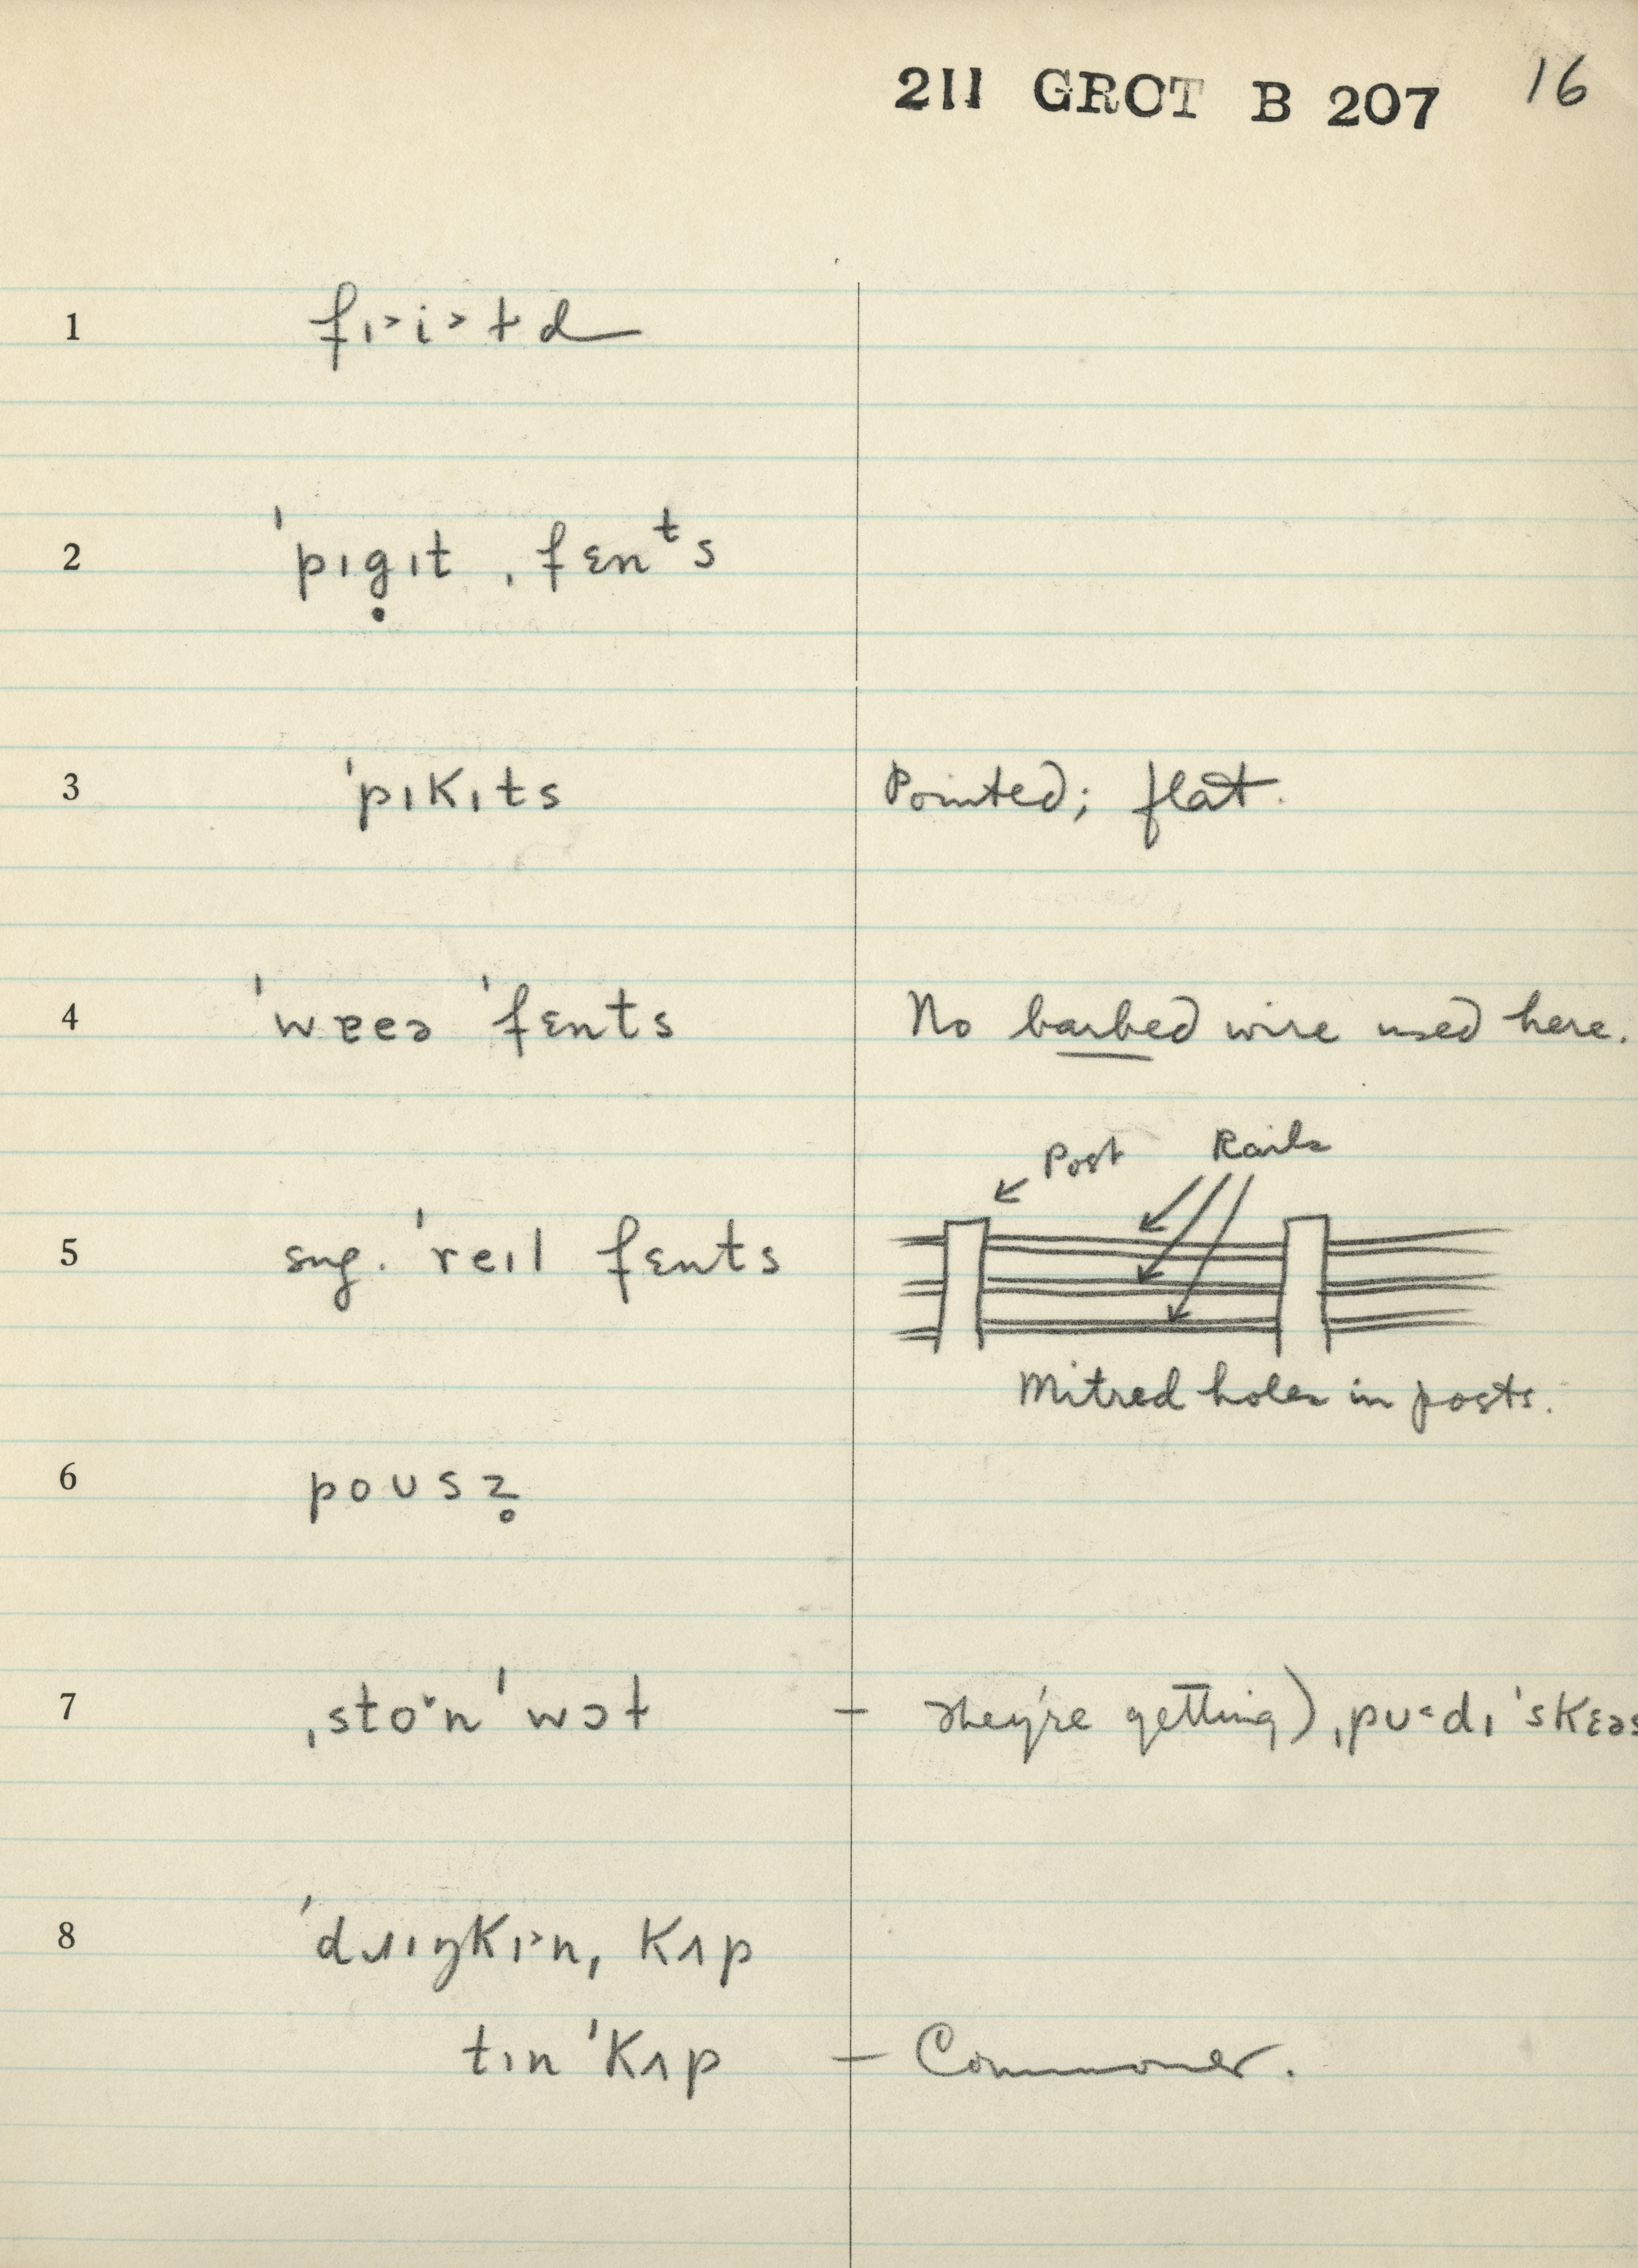 211 GROT B 207 16
1 fɪ˃i˃ɫd
2 ˈpɪg̣ɪt ˌfɛnᵗs
3 ˈpɪkɪts Pointed; flat.
4 ˈwɐeə ˈfɛnts No barbed wire used here.
Post Rails
5 sug. ˈreɪl fɛnts
Mitred holes in posts.
6 poʊsz̥
7 ˌstoˑn ˈwɔɫ – They're getting) ˌpʊ˂dɪ ˈskɛəs
8 ˈdɹɪŋkɪ˃nˌ kʌp
tɪn ˈkʌp – Commoner.